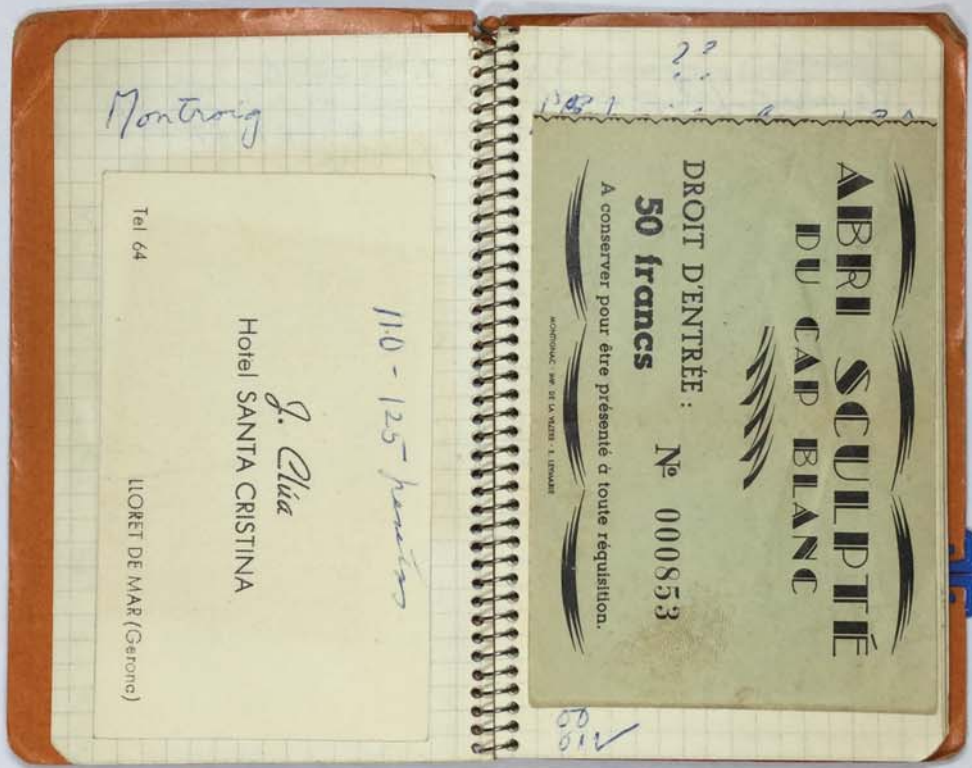 Montroig
110 - 125 pesetas
J. Clúa
Hotel SANTA CRISTINA
Tel 64
LLORET DE MAR (Gerona)
??
ABRI SCULPTÉ
DU CAP BLANC
DROIT D'ENTRÉE :
50 francs
Nº 000853
A conserver pour être présenté à toute réquisition.
MONTIGNAC - IMP. DE LA VÉZÈRE - E. LEYMARIE